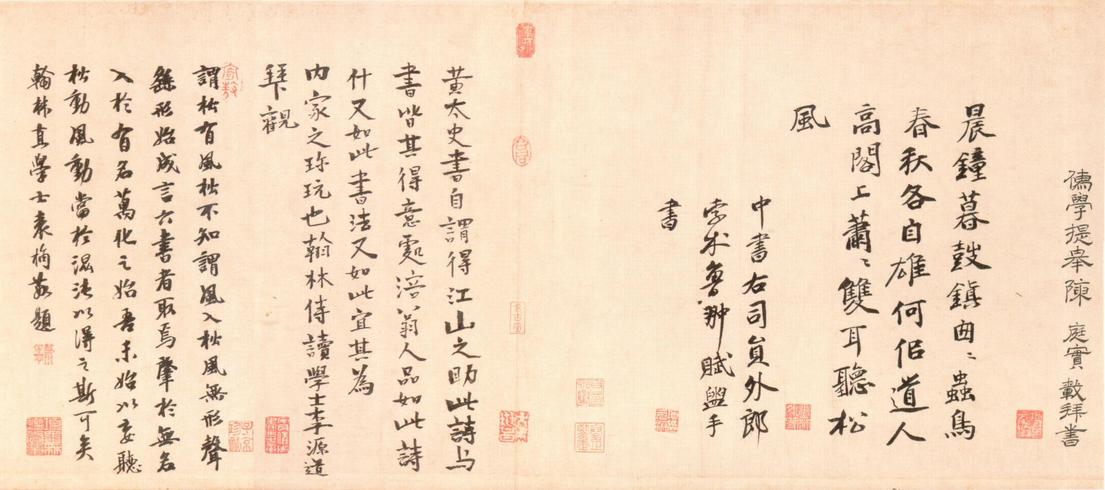 儒學提舉陳 庭實 載拜書
晨鐘暮鼓鎮囱〻蟲鳥
春秋各自雄何佀道人
高閣上蕭〻雙耳聽松
風
中書右司員外郎
孛朮魯翀賦盥手
書
黃太史書自謂得江山之助此詩与
書皆其得意處涪翁人品如此詩
什又如此書法又如此宜其為
内家之珎玩也翰林侍讀學士李源道
拜觀
謂松有風松不知謂風入松風無形聲
繇形始成言六書者取焉肇於無名
入於有名萬化之始吾未始以妄聽
松動風動當於混沌以得之斯可矣
翰林直學士袁桷敬題